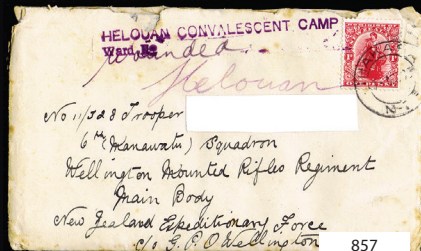 HELOUAN CONVALESCENT CAMP
Ward
wounded
Helouan
No 11/328 Trooper
6th (Manawatu) Squadron
Wellington Mounted Rifles Regiment
Main Body
New Zealand Expeditionary Force
c/o G.P.O Wellington
857